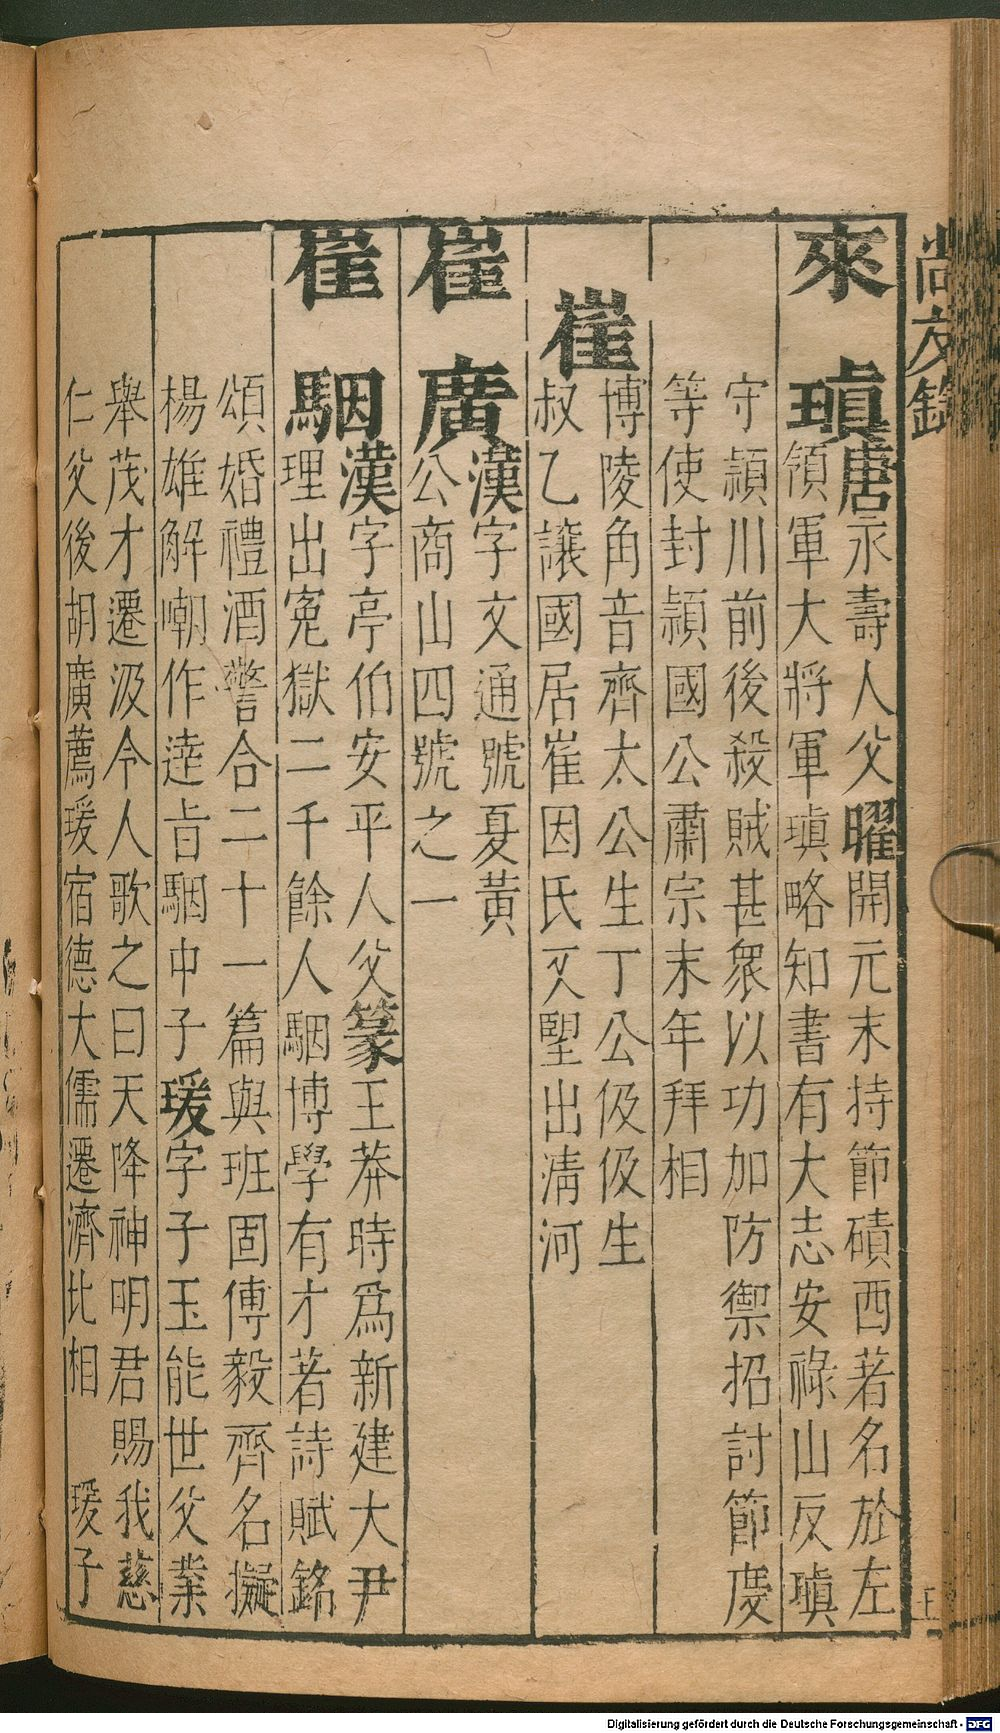 尚友錄
來瑱
唐永壽人父曜開元末持節磧西著名於左
領軍大將軍瑱略知書有大志安祿山反瑱
守潁川前後殺賊甚衆以功加防禦招討節度
等使封潁國公肅宗末年拜相
崔
博陵角音齊太公生丁公伋伋生
叔乙讓國居崔因氏又望出淸河
崔廣
漢字文通號夏黃
公商山四號之一
崔駰
漢字亭伯安平人父篆王莽時爲新建大尹
理出冤獄二千餘人駰博學有才著詩賦銘
頌婚禮酒警合二十一篇與班固傅毅齊名擬
楊雄解嘲作達旨駰中子瑗字子玉能世父業
舉茂才遷汲令人歌之曰天降神明君賜我慈
仁父後胡廣薦瑗宿德大儒遷濟北相 瑗子
Digitalisierung gefördert durch die Deutsche Forschungsgemeinschaft - DFG